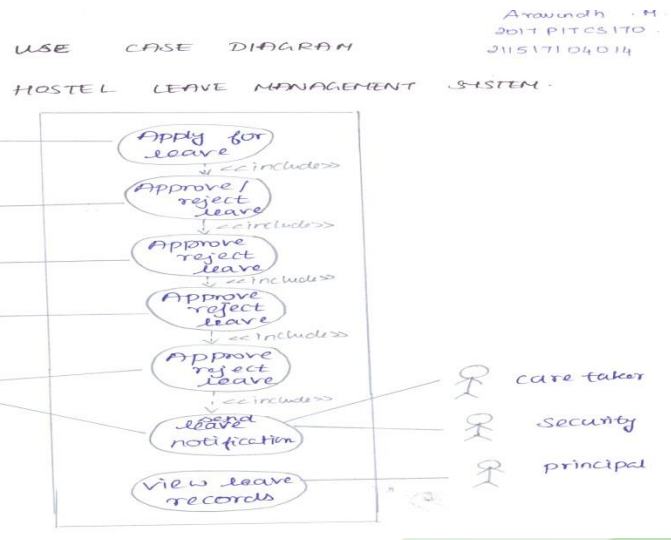 Aravindh . M
2017 PITCS170 .
211517104014
USE CASE DIAGRAM
HOSTEL LEAVE MANAGEMENT SYSTEM .
Apply for
leave
<<include>>
Approve /
reject
leave
<<include>>
Approve
reject
leave
<<include>>
Approve
reject
leave
<<include>>
Approve
reject
leave
<<include>>
send
leave
notification
View leave
records
care taker
security
principal